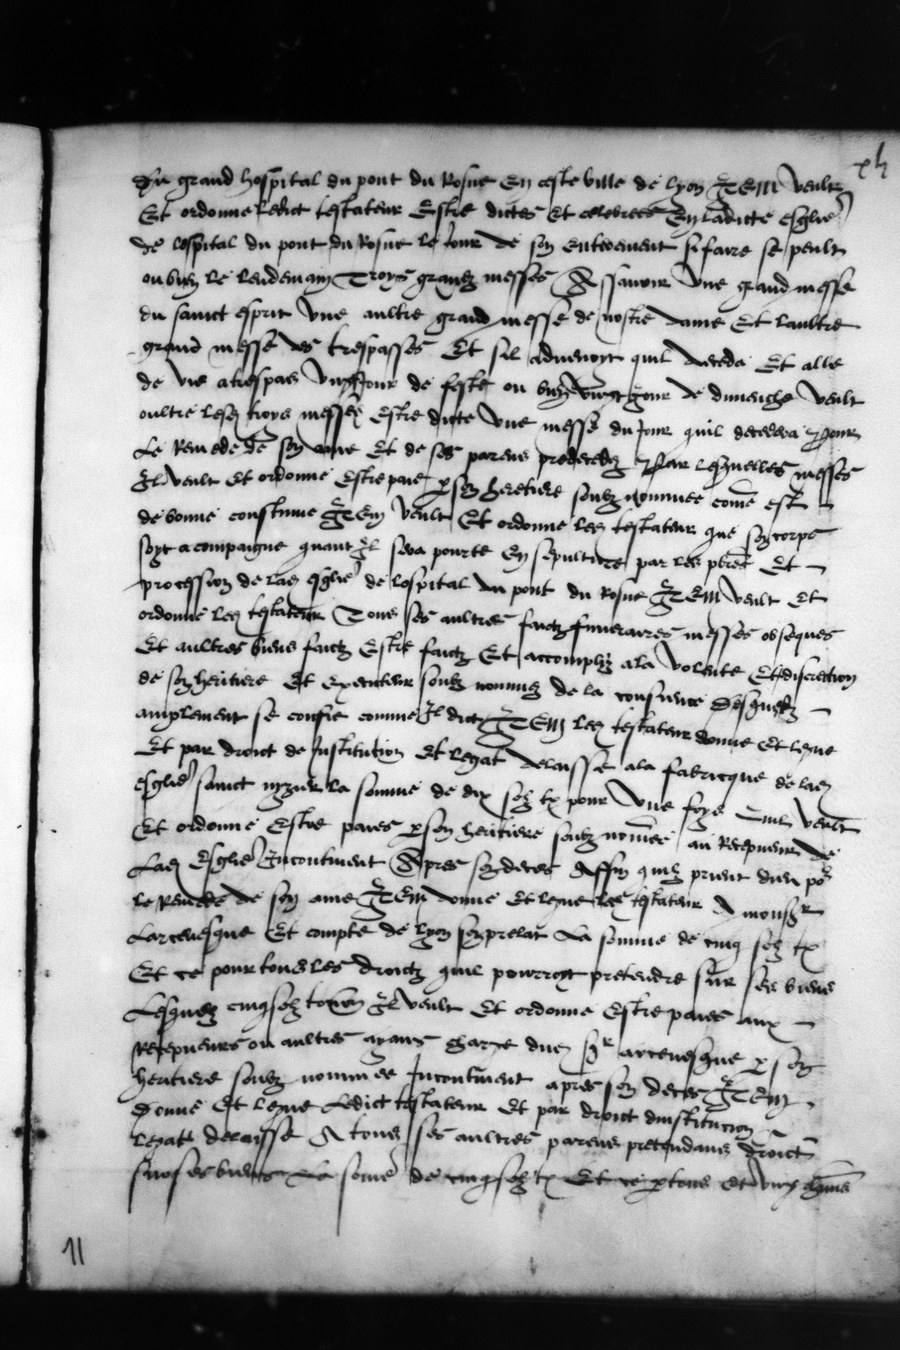 xl
Du grand hospital du pont du Rosne En ceste ville de lyon ITEM veult
Et ordonne ledict testateur Estre dictes Et celebrees En ladicte esglie
de lospital du pont du Rosne le Jour de son enterement si faire se peult
ou bien le lendemain Troys grandz messes Assavoir Une grand messe
du sainct esprit Une aultre grand messe de nostre dame Et laultre
grand messe des trespasses Et sil advenoyt quil decede Et aille
de vie a trespas ung Jour de feste ou bien ung Jour de dimenche veult
oultre lesd troys messes Estre dicte Une messe du Jour quil decedera Pour
Le Remede de son ame Et de ses parens predecedez Par lesquelles messes
Il veult Et ordonne Estre paie p son heretiere soubz nommee come est
de bonne coustume ITEM veult Et ordonne led testateur que son corps
soyt acompaigne quant Il sera pourte En sepulture par les pbres Et
procession de lad esglie de lospital du pont du Rosne ITEM veult Et
ordonne led testateur Tous ses aultres faictz funeraires messes obseques
Et aultres biens faictz Estre faictz Et accompliz a la volente Et discretion
de son heritiere Et executeur soubz nommez de la conscience Desquelz
amplement se confie comme Il dict ITEM led testateur donne Et legue
Et par droict de Institution Et legat delaisse a la fabricque de lad
esglie sainct nizier la somme de dix solz tz pour Une foys veult
Et ordonne Estre paies p son heritiere soubz nommee au Recepueur de
Lad Esglie Incontinent Apres son deces Affin quilz prient dieu po
le Remede de son ame ITEM donne Et legue led testateur A monsr
Larcevesque Et compte de lyon son prelat La somme de cinq solz tz
Et ce pour tous les droictz quil pourroyt pretendre sur ses biens
Lesquelz cinq solz tourn Il veult Et ordonne Estre paies aux
Recepueurs ou aultres ayans charge dud sr arcevesque p son
heritiere soubz nommee Incontinent apres son deces ITEM
Donne Et legue Ledict testateur Et par droict dinstitucion
legat delaisse A tous ses aultres parens pretendans droict
sur ses biens La some de cinq solz tz Et ce p tous Et ung chuns
11